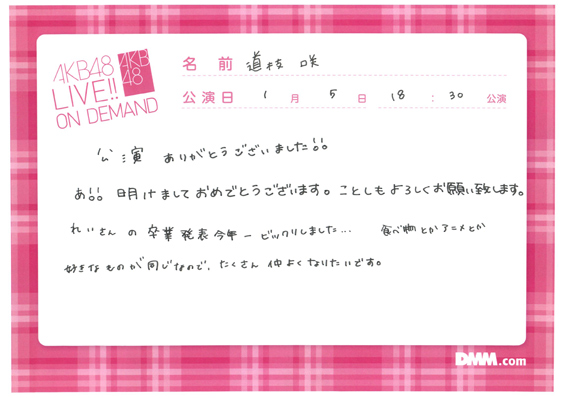 AKB48
LIVE!!
ON DEMAND
AKB
48
名 前 道枝 咲
公演日 1 月 5 日 18 : 30 公演
公演 ありがとうございました!!
あ!! 明けましておめでとうございます。ことしもよろしくお願い致します。
れいさん の 卒業発表今年一ビックリしました... 食べ物とかアニメとか
好きなものが同じなので、たくさん 仲よくなりたいです。
DMM.com